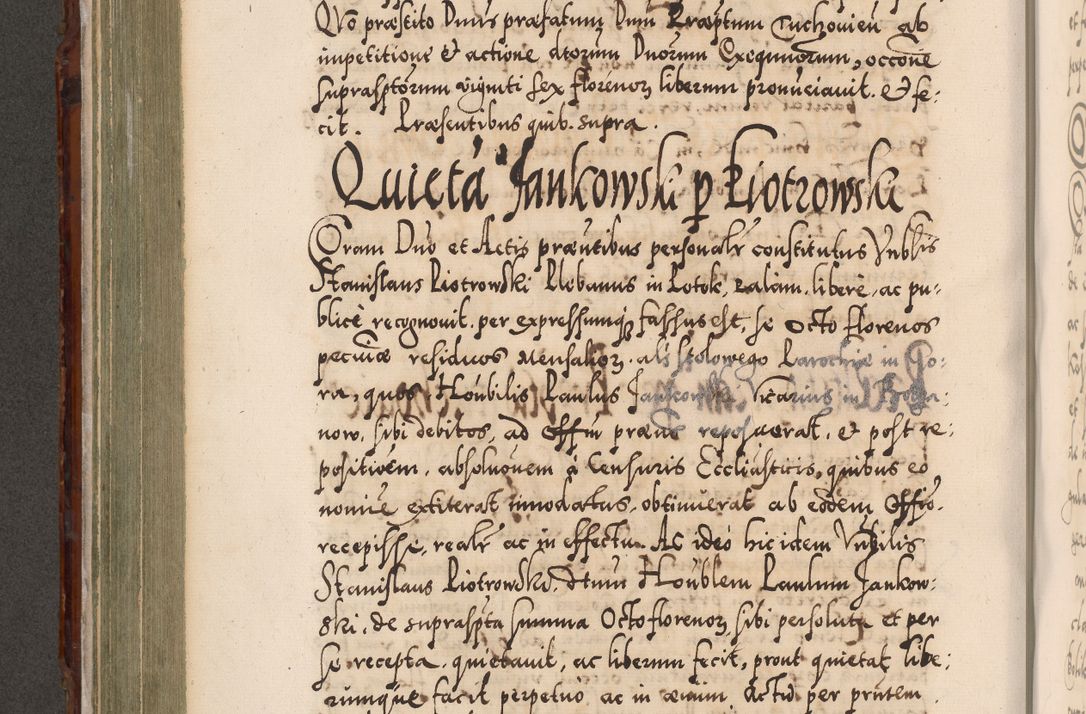 Quo præstito Dnus præfatum Dnum Præptum Tuchovien ab
impetitione & actione dtorum Dnorum Exequutorum, occone
suprasptorum viginti sex florenorum liberum pronuciauit. & fe:
cit. Præsentibus quib. supra.
Quieta Jankowski p Piotrowski
Coram Dno et Actis præntibus personalr constitutus Vnblis
Stanislaus Piotrowski Plebanus in Potok, palam. libere, ac pu:
blice recognovit. per expressumq fassus est, se Octo florenos
pecuniæ residuos mensalior. als stolowego Parochiæ in Go:
ra, quos Honbilis Paulus Jankowski Vicarius in Boga:
now, sibi debitos, ad Offm præns reposuerat. & post re:
positioem. absolutionem à Censuris Ecclīasticis, quibus eo
nomine extiterat innodatus, obtinuerat ab eodem Offio.
recepisse, realr ac in effectu. Ac ideo hic idem Vnbilis
Stanislaus Piotrowski, dtum Honblem Paulum Jankow:
ski. de supraspta summa Octo florenor, sibi persoluta et per
se recepta. quietauit, ac liberum fecit, prout quietat libe:
rumque facit perpetuo ac in ævum. Actu per prntem